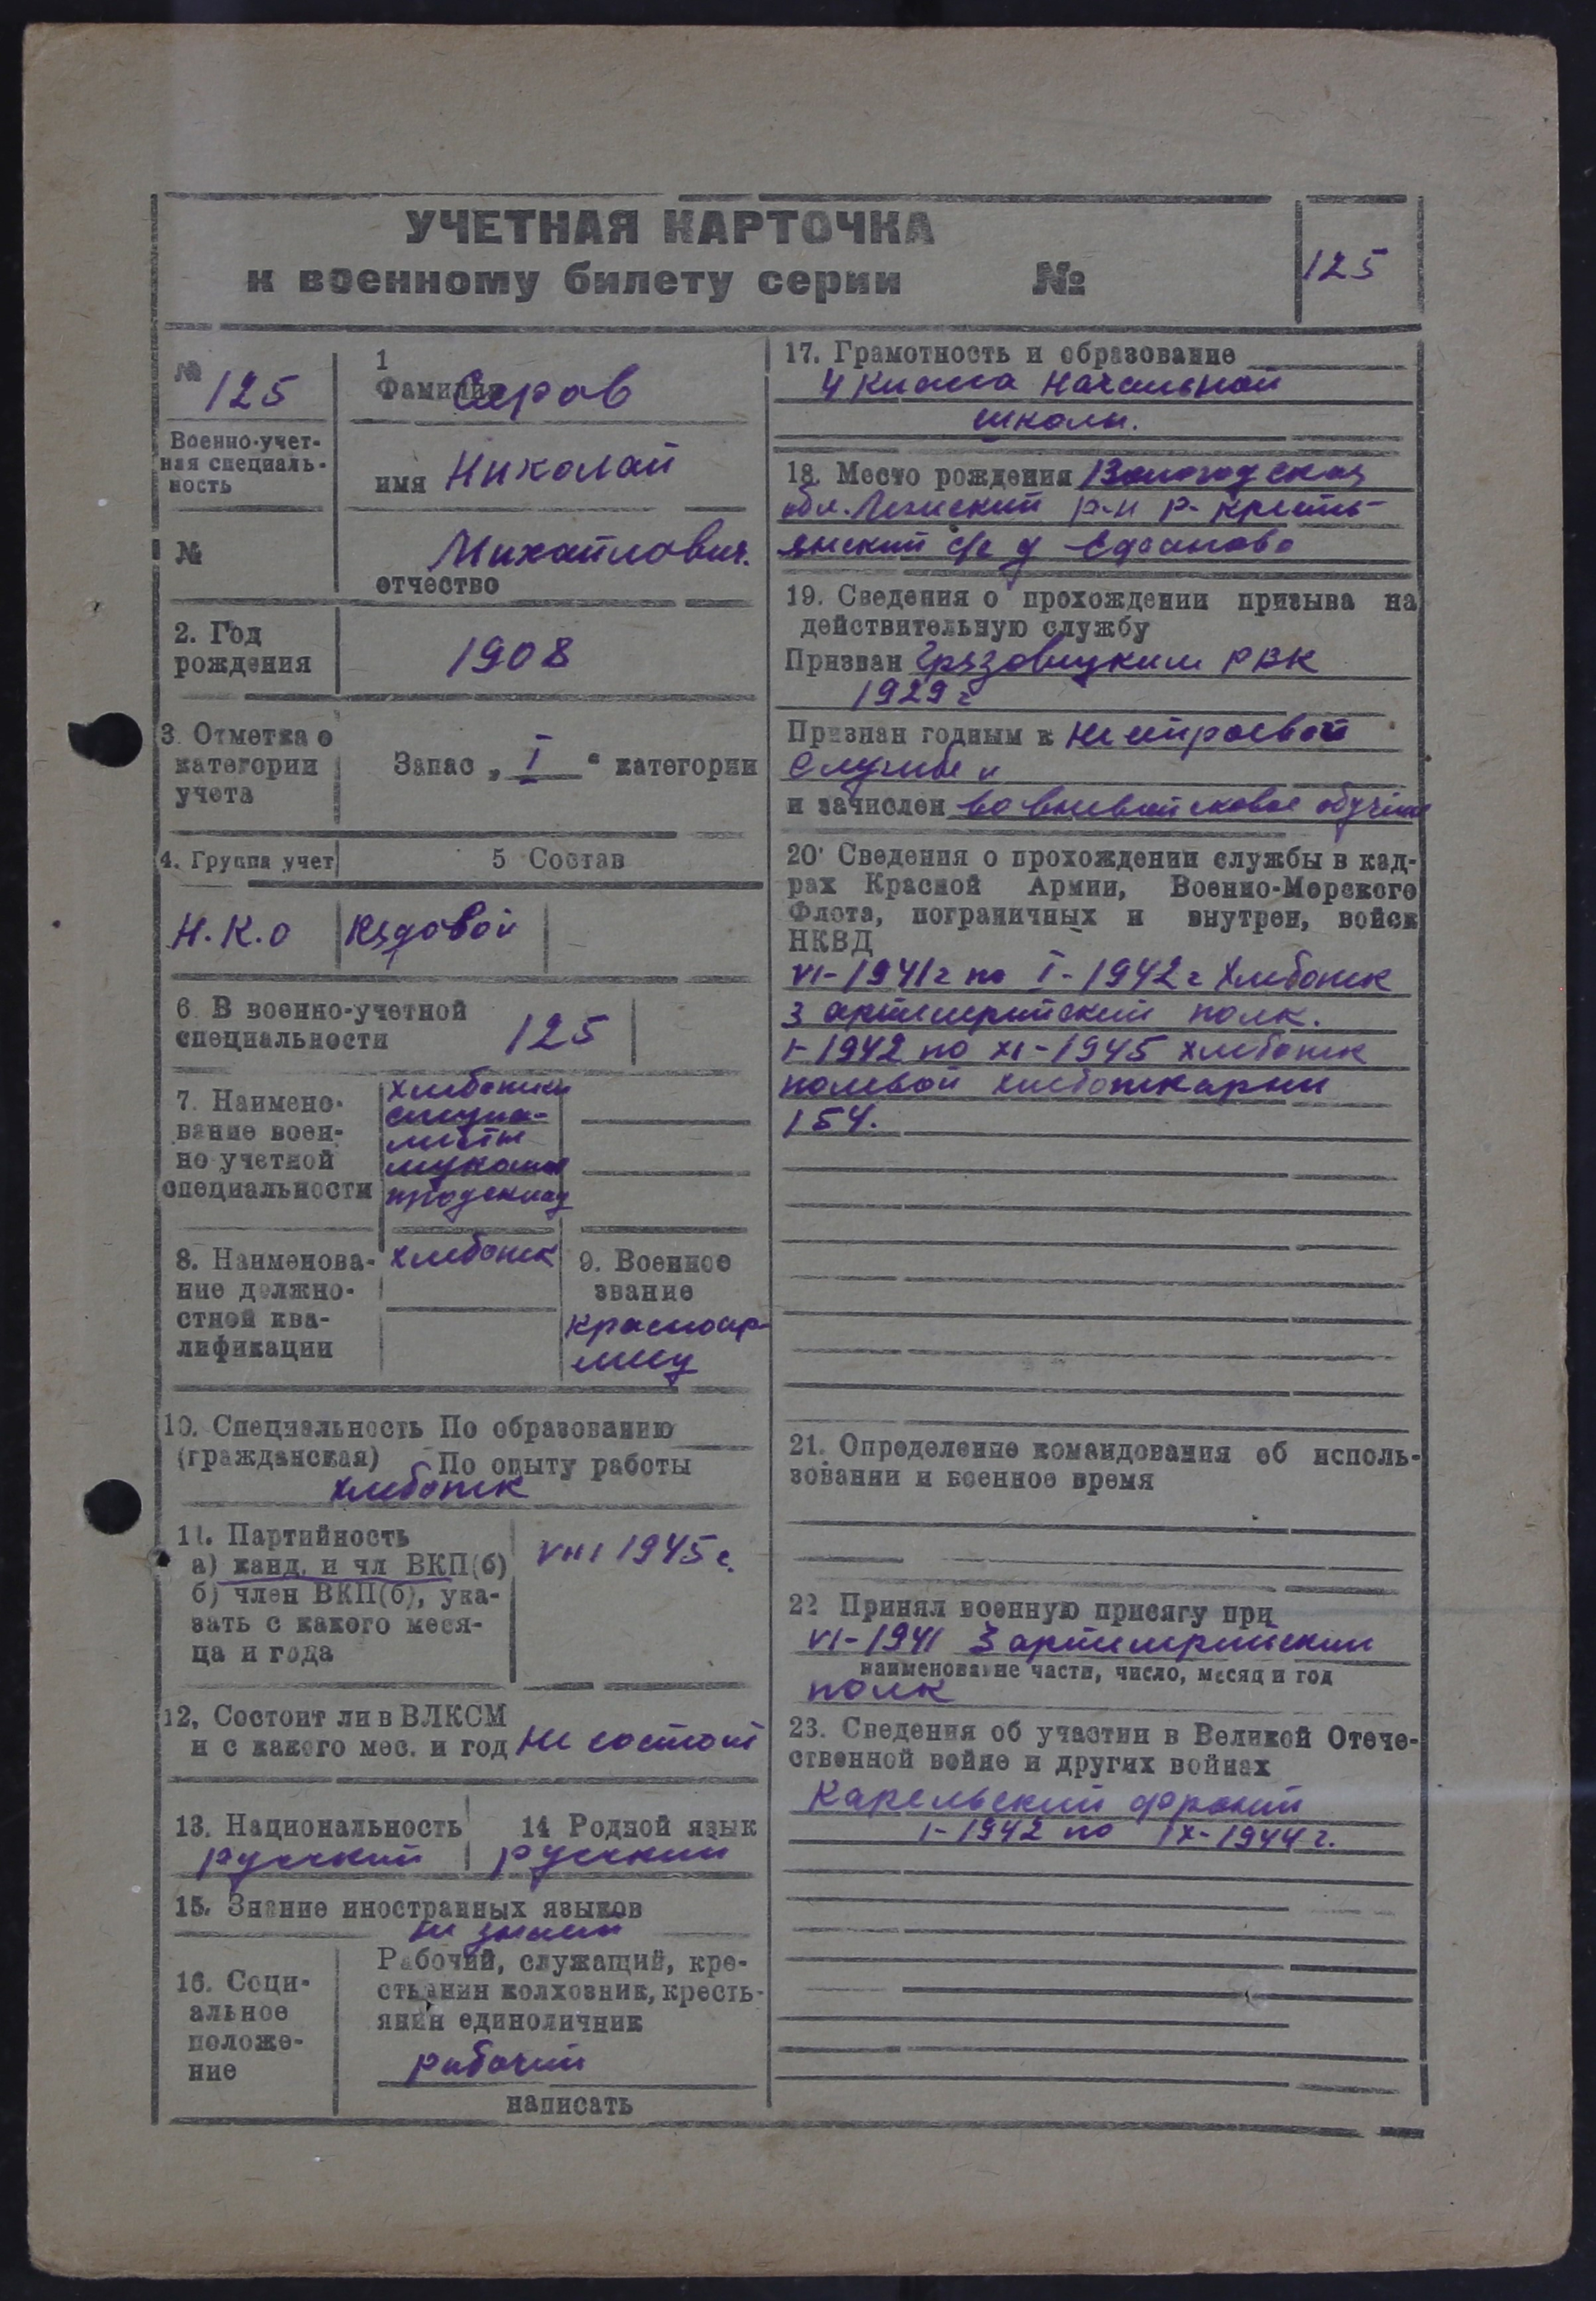 УЧЕТНАЯ КАРТОЧКА
к военному билету серии №
125
№
125
Военно-учет-
ная специаль-
ность
№
1
Фамилия Серов
имя Николай
Михайлович.
отчество
2. Год
рождения
1908
3. Отметка о
категории
учета
Запас „ I “ категории
4. Группа учет
5 Состав
Н.К.О
Рядовой
6. В военно-учетной
специальности
125
7. Наимено-
вание воен-
но учетной
специальности
хлебопеки
специа-
листы
продсклад
8. Наименова-
ние должно-
стной ква-
лификации
хлебопек
9. Военное
звание
красноар-
меец
10. Специальность По образованию
(гражданская) По опыту работы
хлебопек
11. Партийность
а) канд. и чл ВКП(б)
б) член ВКП(б), ука-
зать с какого меся-
ца и года
VIII 1945 г.
12, Состоит ли в ВЛКСМ
и с какого мес. и год не состоит
13. Национальность
русский
14 Родной язык
русский
15. Знание иностранных языков
не знает
16. Соци-
альное
положе-
ние
Рабочий, служащий, кре-
стьянин колхозник, кресть-
янин единоличник
рабочий
написать
17. Грамотность и образование
4 класса начальной
школы.
18. Место рождения Вологодская
обл. р-н р- кресть-
янский с/с д
19. Сведения о прохождении призыва на
действительную службу
Призван Грязовецким РВК
1929 г
Признан годным к нестроевой
службе и
и зачислен во вневойсковое
20. Сведения о прохождении службы в кад-
рах Красной Армии, Военно-Морского
Флота, пограничных и внутрен, войск
НКВД
VI-1941 г по I-1942 г хлебопек
3 артиллерийский полк.
I-1942 по XI-1945 хлебопек
полевой хлебопекарни
154.
21. Определение командования об исполь-
зовании и военное время
22 Принял военную присягу при
VI-1941 3 артиллерийский
наименование части, число, месяц и год
полк
23. Сведения об участии в Великой Отече-
ственной войне и других войнах
Карельский фронт
I-1942 по IX-1944 г.